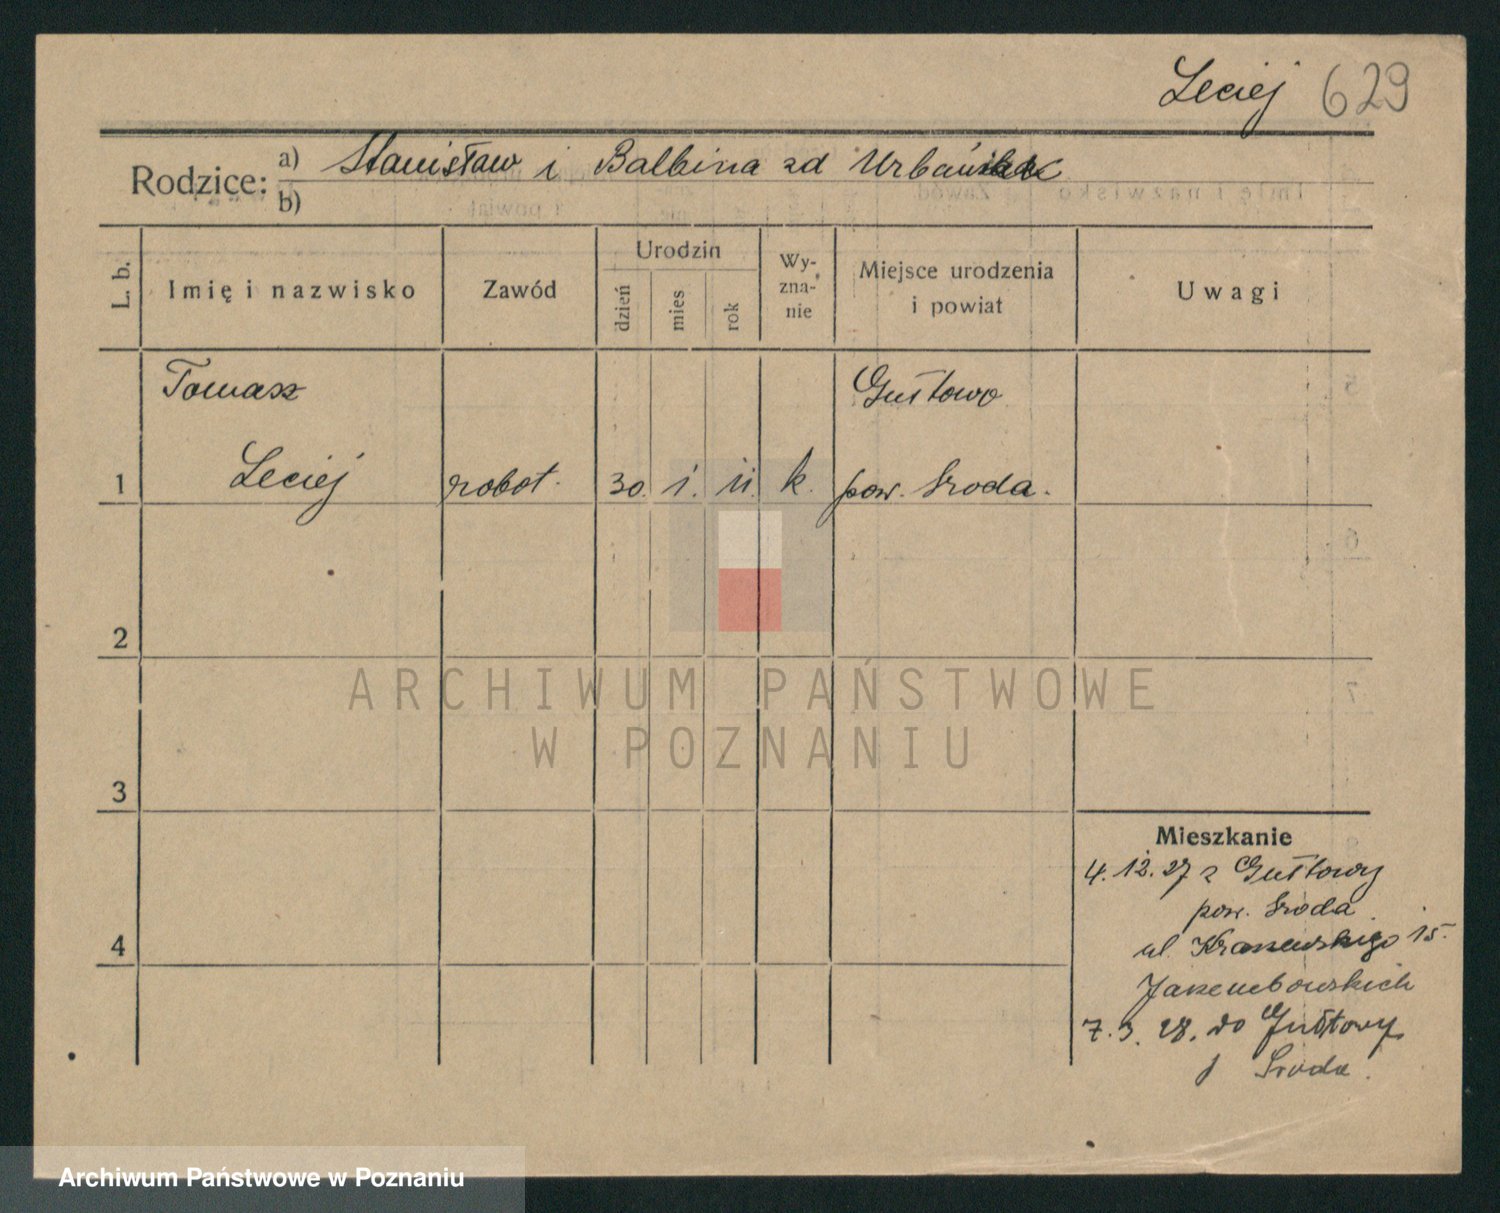 Leciej 629
Rodzice: a) Stanisław i Balbina zd Urbaniak
b)
L. b.
Imię i nazwisko
Zawód
Urodzin
dzień
mies
rok
Wy-
zna-
nie
Miejsce urodzenia
i powiat
Uwagi
Tomasz
Gułtowo
1 Leciej robot. 30. 1. 11. k. pow. Sroda.
2
3
4
Mieszkanie
4. 12. 27 z Gułtowy
pow. Sroda
ul. Kraszewskiego 15.
7. 3. 28. do Gułtowy
Sroda.
ARCHIWUM PAŃSTWOWE
W POZNANIU
Archiwum Państwowe w Poznaniu